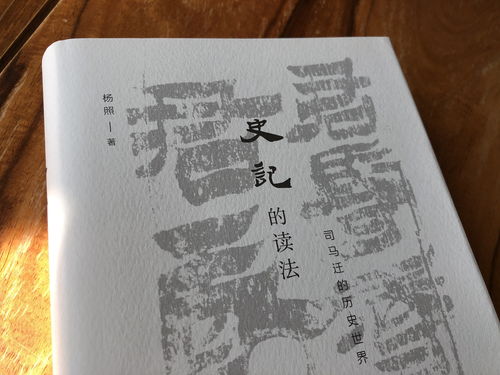 史記
的读法
司马迁的历史世界
杨照一著